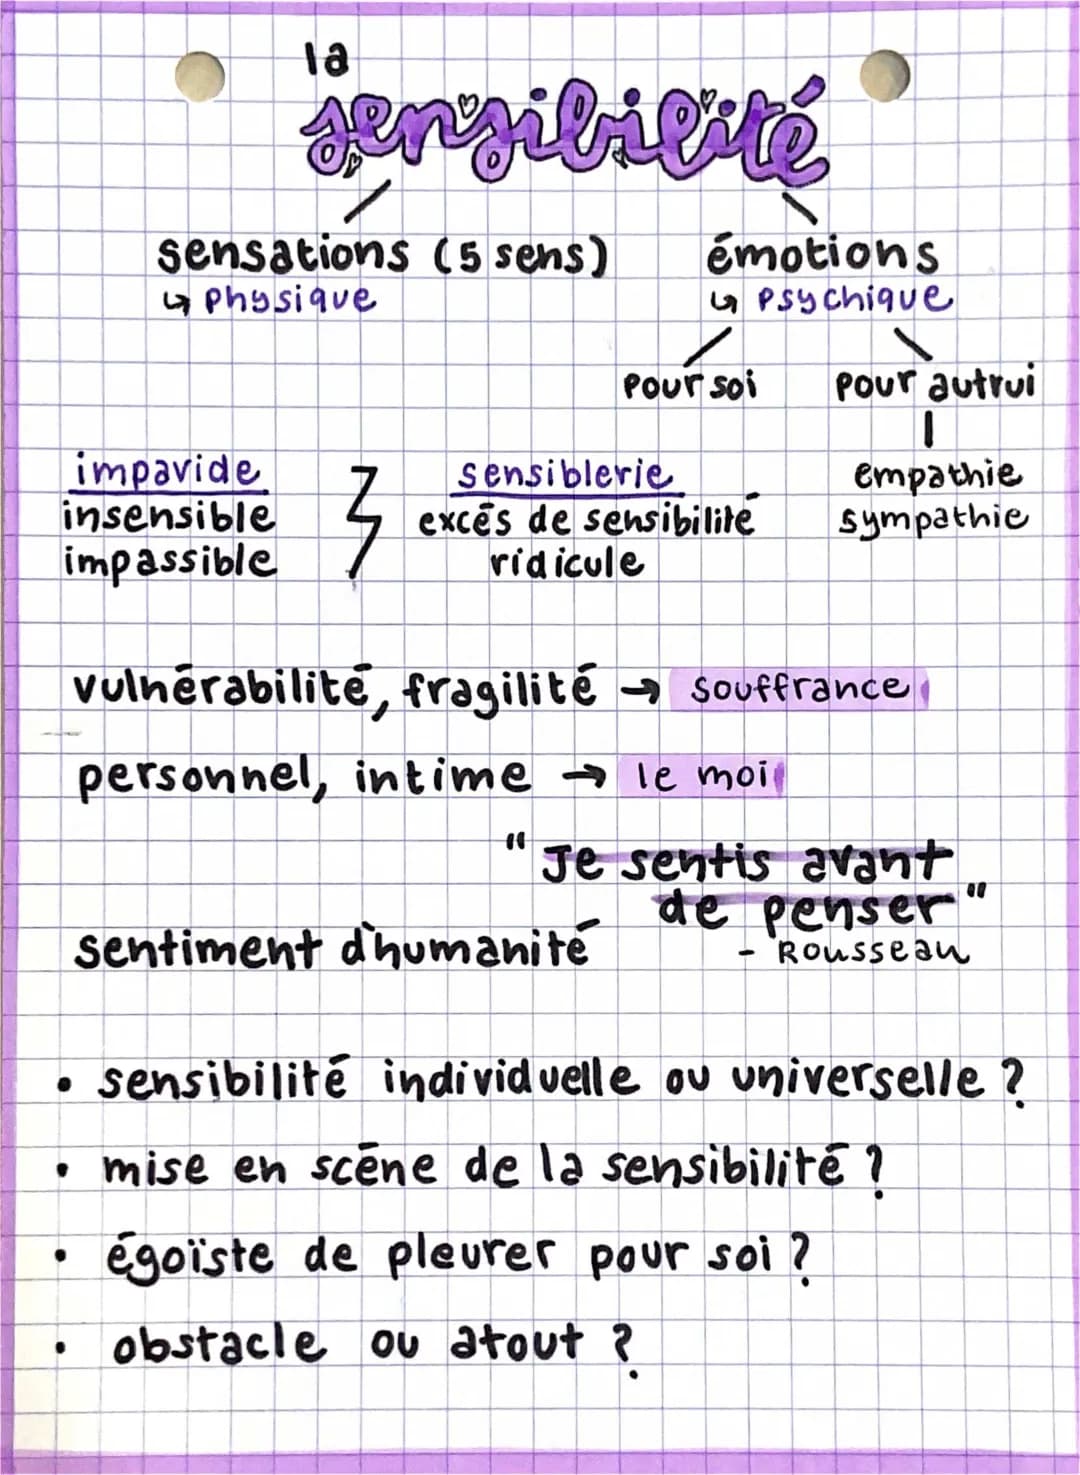 la
sensibilité
sensations (5 sens) émotions
↳ physique ↳ psychique
pour soi pour autrui
impavide sensiblerie empathie
insensible excés de sensibilité sympathie
impassible ridicule
vulnérabilité, fragilité → souffrance
personnel, intime → le moi
"Je sentis avant
de penser"
sentiment d'humanité - Rousseau
• sensibilité individuelle ou universelle ?
• mise en scéne de la sensibilité ?
• égoïste de pleurer pour soi ?
• obstacle ou atout ?